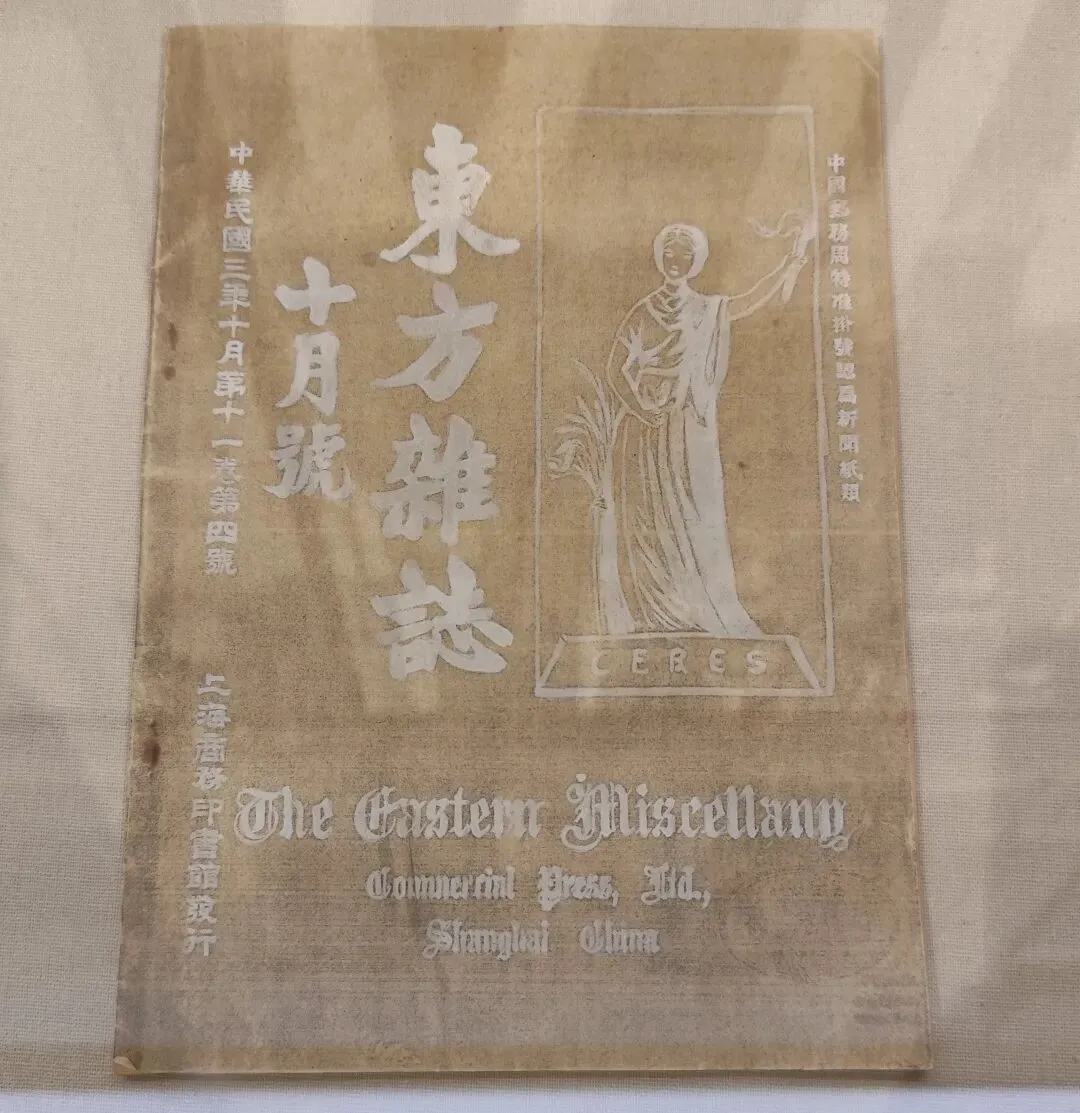 中國郵務局特准掛號認爲新聞紙類
東方雜誌
十月號
中華民國三年十月第十一卷第四號
上海商務印書館發行
CERES
The Eastern Miscellany
Commercial Press, Ltd.,
Shanghai China